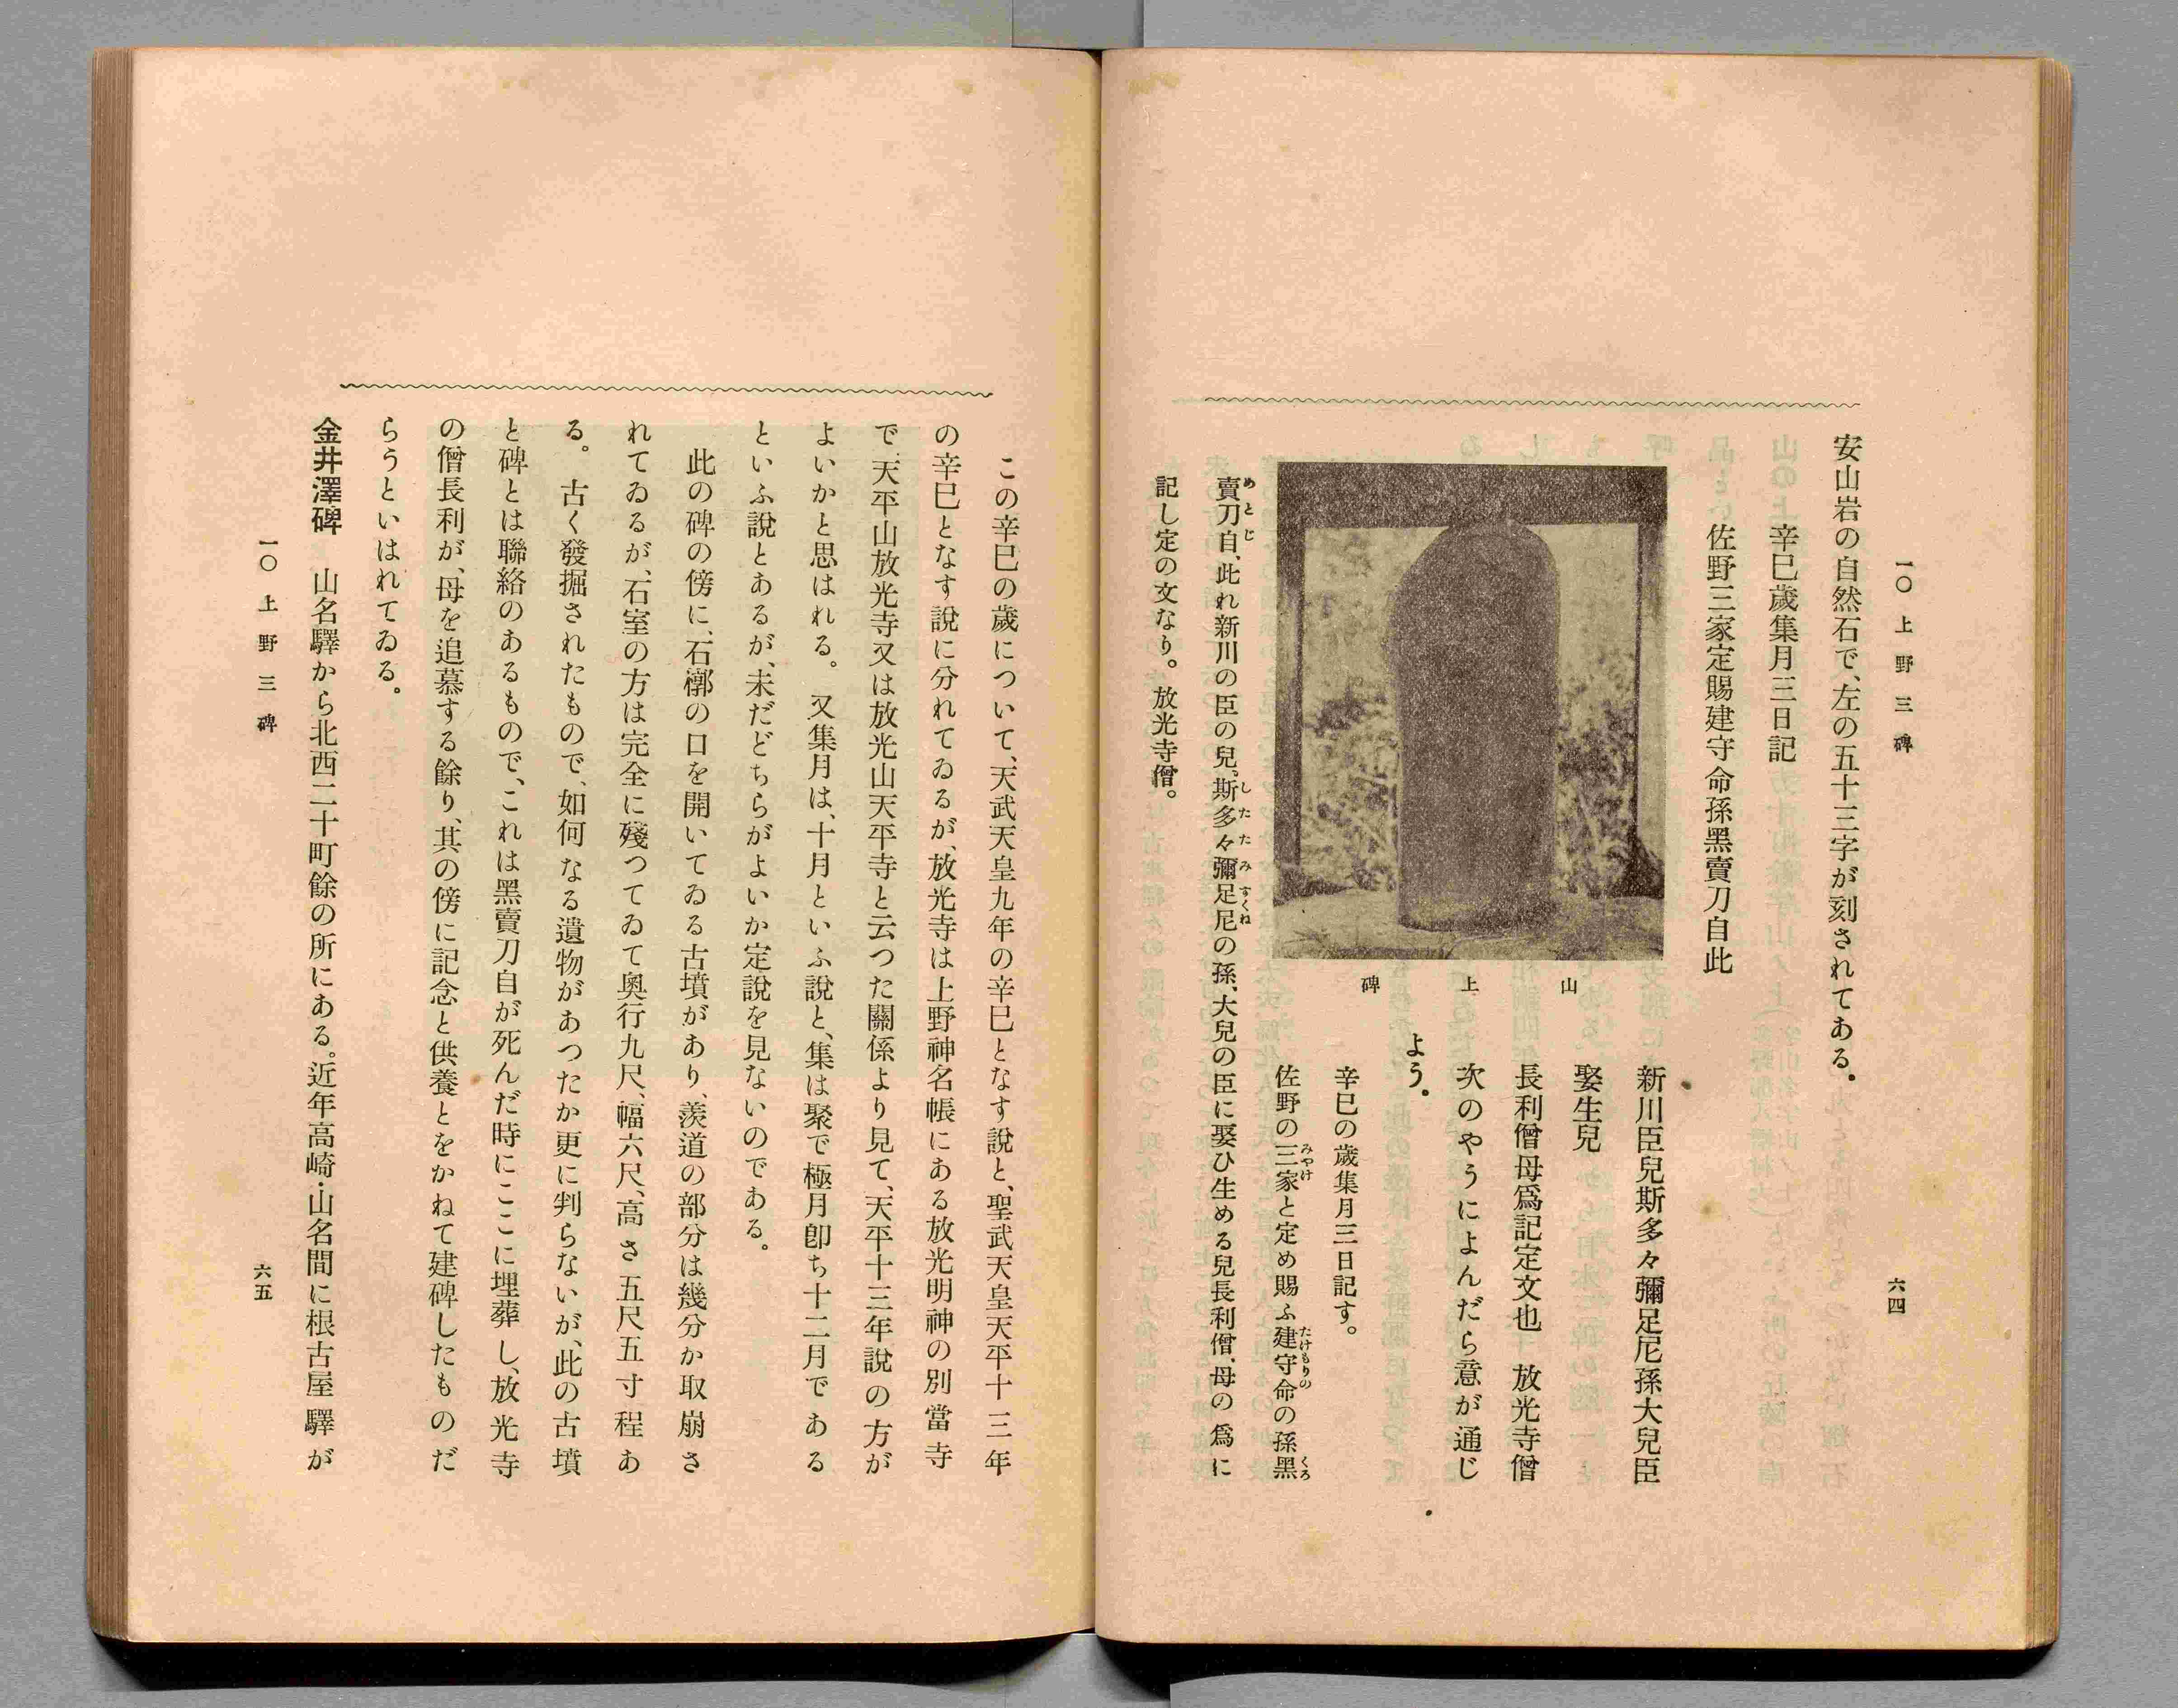 一〇 上野三碑
六四
安山岩の自然石で、左の五十三字が刻されてある。
辛巳歲集月三日記
佐野三家定賜建守命孫黑賣刀自此
新川臣兒斯多々彌足尼孫大兒臣
娶生兒
長利僧母爲記定文也 放光寺僧
次のやうによんだら意が通じ
よう。
山上碑
辛巳の歲集月三日記す。
佐野の三家と定め賜ふ建守命の孫黑
みやけ
たけもりの
くろ
賣刀自、此れ新川の臣の兒。斯多々彌足尼の孫、大兒の臣に娶ひ生める兒長利僧、母の爲に
めとじ
したたみすくね
記し定の文なり。放光寺僧。
この辛巳の歲について、天武天皇九年の辛巳となす說と、聖武天皇天平十三年
の辛巳となす說に分れてゐるが、放光寺は上野神名帳にある放光明神の別當寺
で、天平山放光寺又は放光山天平寺と云つた關係より見て、天平十三年說の方が
よいかと思はれる。又集月は、十月といふ說と、集は聚で極月卽ち十二月である
といふ說とあるが、未だどちらがよいか定說を見ないのである。
此の碑の傍に、石槨の口を開いてゐる古墳があり、羨道の部分は幾分か取崩さ
れてゐるが、石室の方は完全に殘つてゐて奧行九尺、幅六尺、高さ五尺五寸程あ
る。古く發掘されたもので、如何なる遺物があつたか更に判らないが、此の古墳
と碑とは聯絡のあるもので、これは黑賣刀自が死んだ時にここに埋葬し、放光寺
の僧長利が、母を追慕する餘り、其の傍に記念と供養とをかねて建碑したものだ
らうといはれてゐる。
金井澤碑 山名驛から北西二十町餘の所にある。近年高崎・山名間に根古屋驛が
一〇 上野三碑
六五